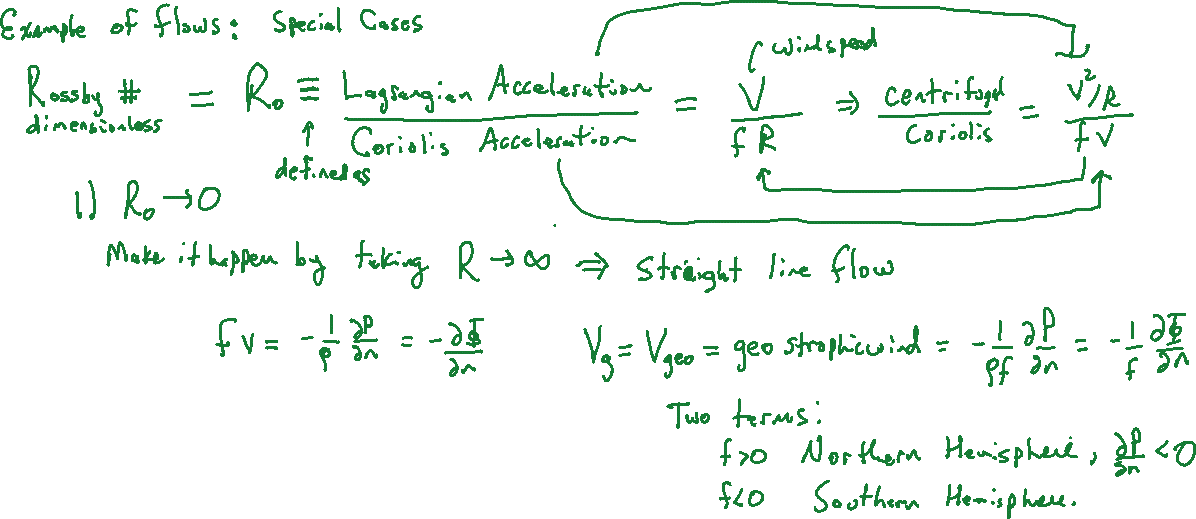 Example of flows: Special Cases
Rossby # = R₀ ≡ Lagrangian Acceleration / Coriolis Acceleration = V / f R ⇒ Centrifugal / Coriolis = V²/R / f V
windspeed
dimensionless
defined as
1.) R₀ → 0
Make it happen by taking R → ∞ ⇒ straight line flow
f V = - 1/ρ ∂P/∂n = - ∂Φ/∂n
Vg = Vgeo = geostrophic wind = - 1/ρf ∂P/∂n = - 1/f ∂Φ/∂n
Two terms:
f>0 Northern Hemisphere, ∂P/∂n < 0
f<0 Southern Hemisphere.